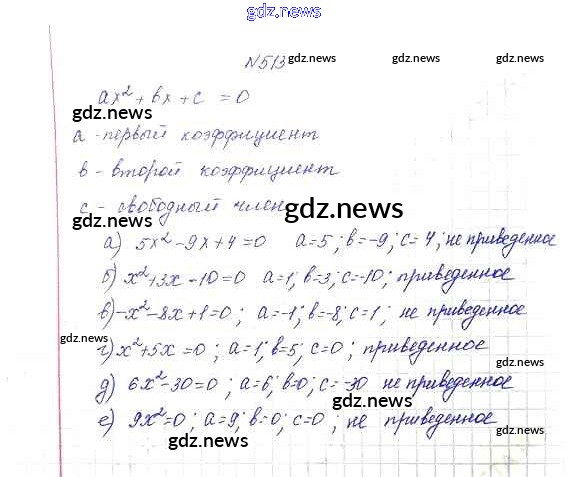 gdz.news
N513 gdz.news gdz.news gdz.news
ax² + bx + c = 0
gdz.news
a - первый коэффициент
в - второй коэффициент
с - свободный член gdz.news
gdz.news
а) 5x² - 9x + 4 = 0 a = 5; в = -9; c = 4; не приведенное
б) x² + 3x - 10 = 0 a = 1; в = 3; c = -10; приведенное
в) -x² - 8x + 1 = 0; a = -1; в = -8; c = 1; не приведенное
gdz.news
г) x² + 5x = 0; a = 1; в = 5; c = 0; приведенное
gdz.news
д) 6x² - 30 = 0; a = 6; в = 0; c = -30 не приведенное
gdz.news
е) 9x² = 0; a = 9; в = 0; c = 0; не приведенное
gdz.news gdz.news